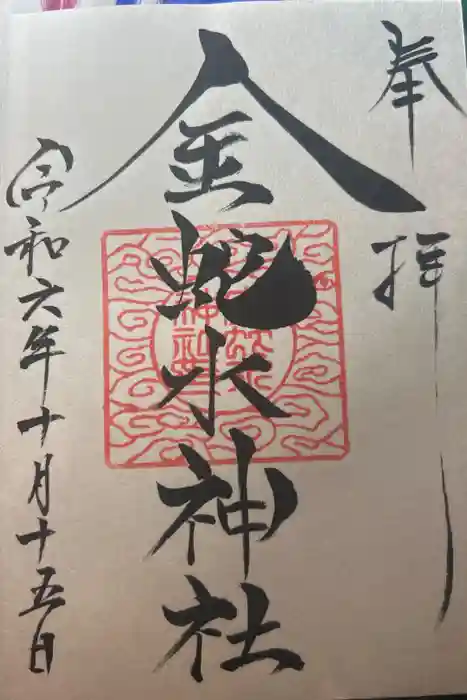 奉拝
金蛇水神社
令和六年十月十五日